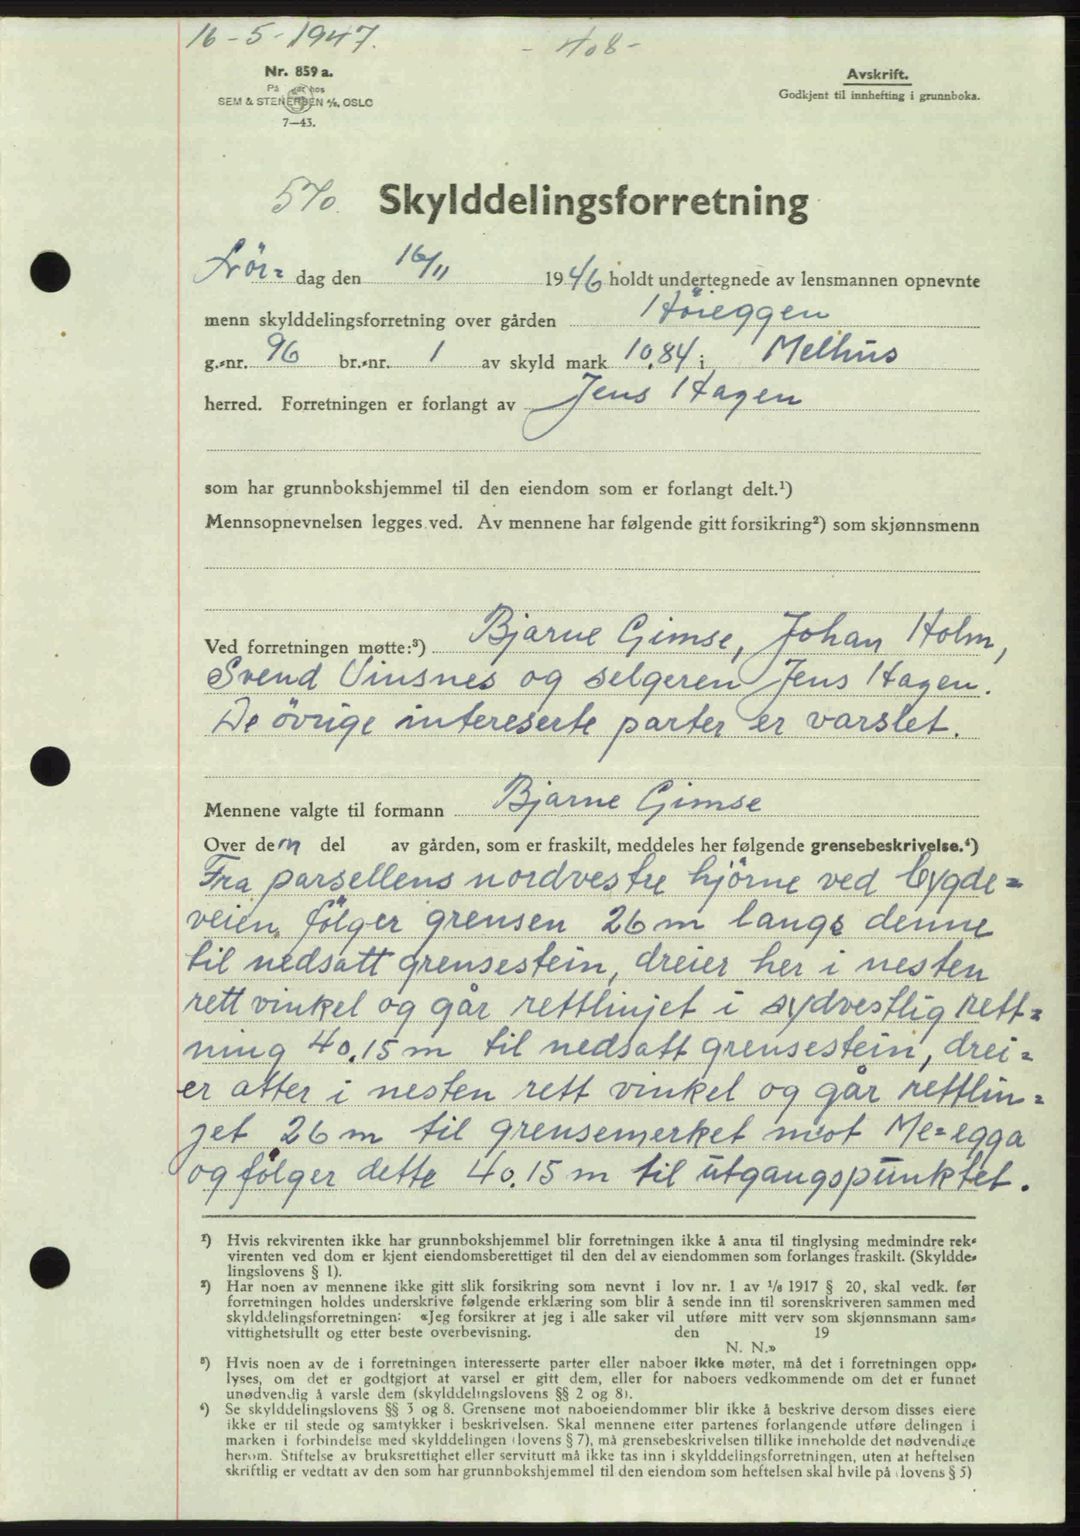 16-5-1947.
- 408 -
Nr. 859 a.
Avskrift.
SEM & STENERSEN A/S, OSLO
Godkjent til innhefting i grunnboka.
7—43.
570. Skylddelingsforretning
Lör= dag den 16/11 1946 holdt undertegnede av lensmannen opnevnte
menn skylddelingsforretning over gården Höieggen
g.-nr. 96 br.-nr. 1 av skyld mark 10,84 i Melhus
herred. Forretningen er forlangt av Jens Hagen
som har grunnbokshjemmel til den eiendom som er forlangt delt.¹)
Mennsopnevnelsen legges ved. Av mennene har følgende gitt forsikring²) som skjønnsmenn
Ved forretningen møtte:³) Bjarne Gimse, Johan Holm,
Svend Vinsnes og selgeren Jens Hagen.
De övrige intereserte parter er varslet.
Mennene valgte til formann Bjarne Gimse
Over den del av gården, som er fraskilt, meddeles her følgende grensebeskrivelse.⁴)
Fra parsellens nordvestre hjörne ved bygde=
veien fölger grensen 26 m langs denne
til nedsatt grensestein, dreier her i nesten
rett vinkel og går rettlinjet i sydvestlig rett=
ning 40.15 m til nedsatt grensestein, drei=
er atter i nesten rett vinkel og går rettlin=
jet 26 m til grensemerket mot Me=egga
og fölger dette 40.15 m til utgangspunktet.
¹) Hvis rekvirenten ikke har grunnbokshjemmel blir forretningen ikke å anta til tinglysing medmindre rek-
virenten ved dom er kjent eiendomsberettiget til den del av eiendommen som forlanges fraskilt. (Skyldde-
lingslovens § 1).
²) Har noen av mennene ikke gitt slik forsikring som nevnt i lov nr. 1 av 1/6 1917 § 20, skal vedk. før
forretningen holdes underskrive følgende erklæring som blir å sende inn til sorenskriveren sammen med
skylddelingsforretningen: «Jeg forsikrer at jeg i alle saker vil utføre mitt verv som skjønnsmann sam-
vittighetsfullt og etter beste overbevisning. den 19
N. N.»
³) Hvis noen av de i forretningen interesserte parter eller naboer ikke møter, må det i forretningen opp-
lyses, om det er godtgjort at varsel er gitt dem, eller for naboers vedkommende om det er funnet
unødvendig å varsle dem (skylddelingslovens §§ 2 og 8).
⁴) Se skylddelingslovens §§ 3 og 8. Grensene mot naboeiendommer blir ikke å beskrive dersom disses eiere
ikke er til stede og samtykker i beskrivelsen. Skal mennene etter partenes forlangende utføre delingen i
marken i forbindelse med skylddelingen (lovens § 7), må grensebeskrivelsen tillike inneholde det nødvendige
herom. Stiftelse av bruksrettighet eller servitutt må ikke tas inn i skylddelingsforretningen, uten at heftelsen
skriftlig er vedtatt av den som har grunnbokshjemmel til den eiendom som heftelsen skal hvile på (lovens § 5)